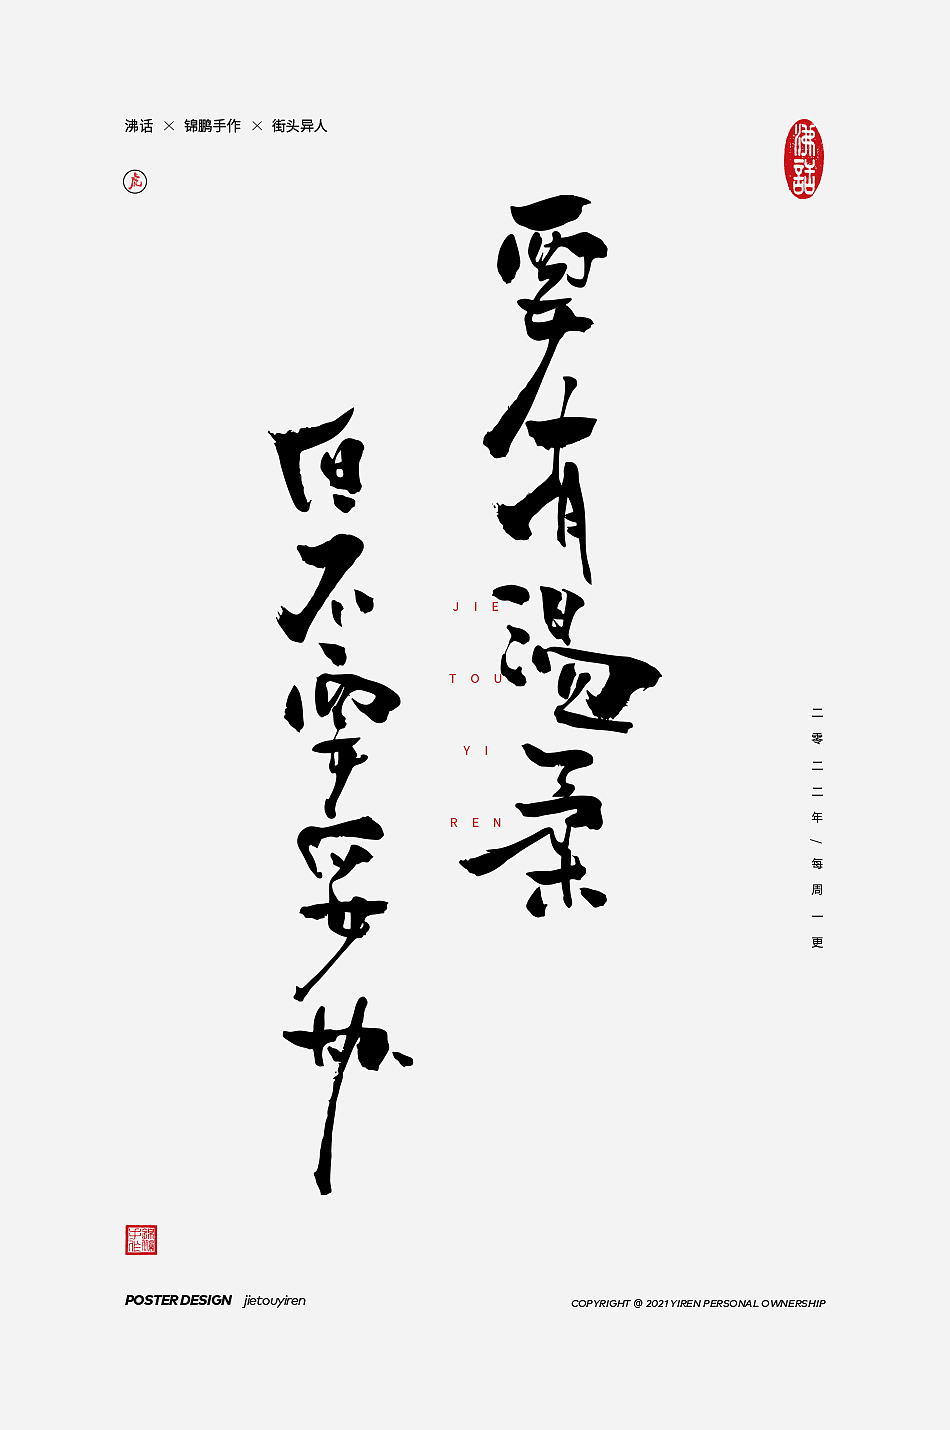 沸话 × 锦鹏手作 × 街头异人
虎
沸話
要有温柔
但不需妥协
JIE
TOU
YI
REN
二零二二年/每周一更
POSTER DESIGN jietouyiren
COPYRIGHT @ 2021 YIREN PERSONAL OWNERSHIP